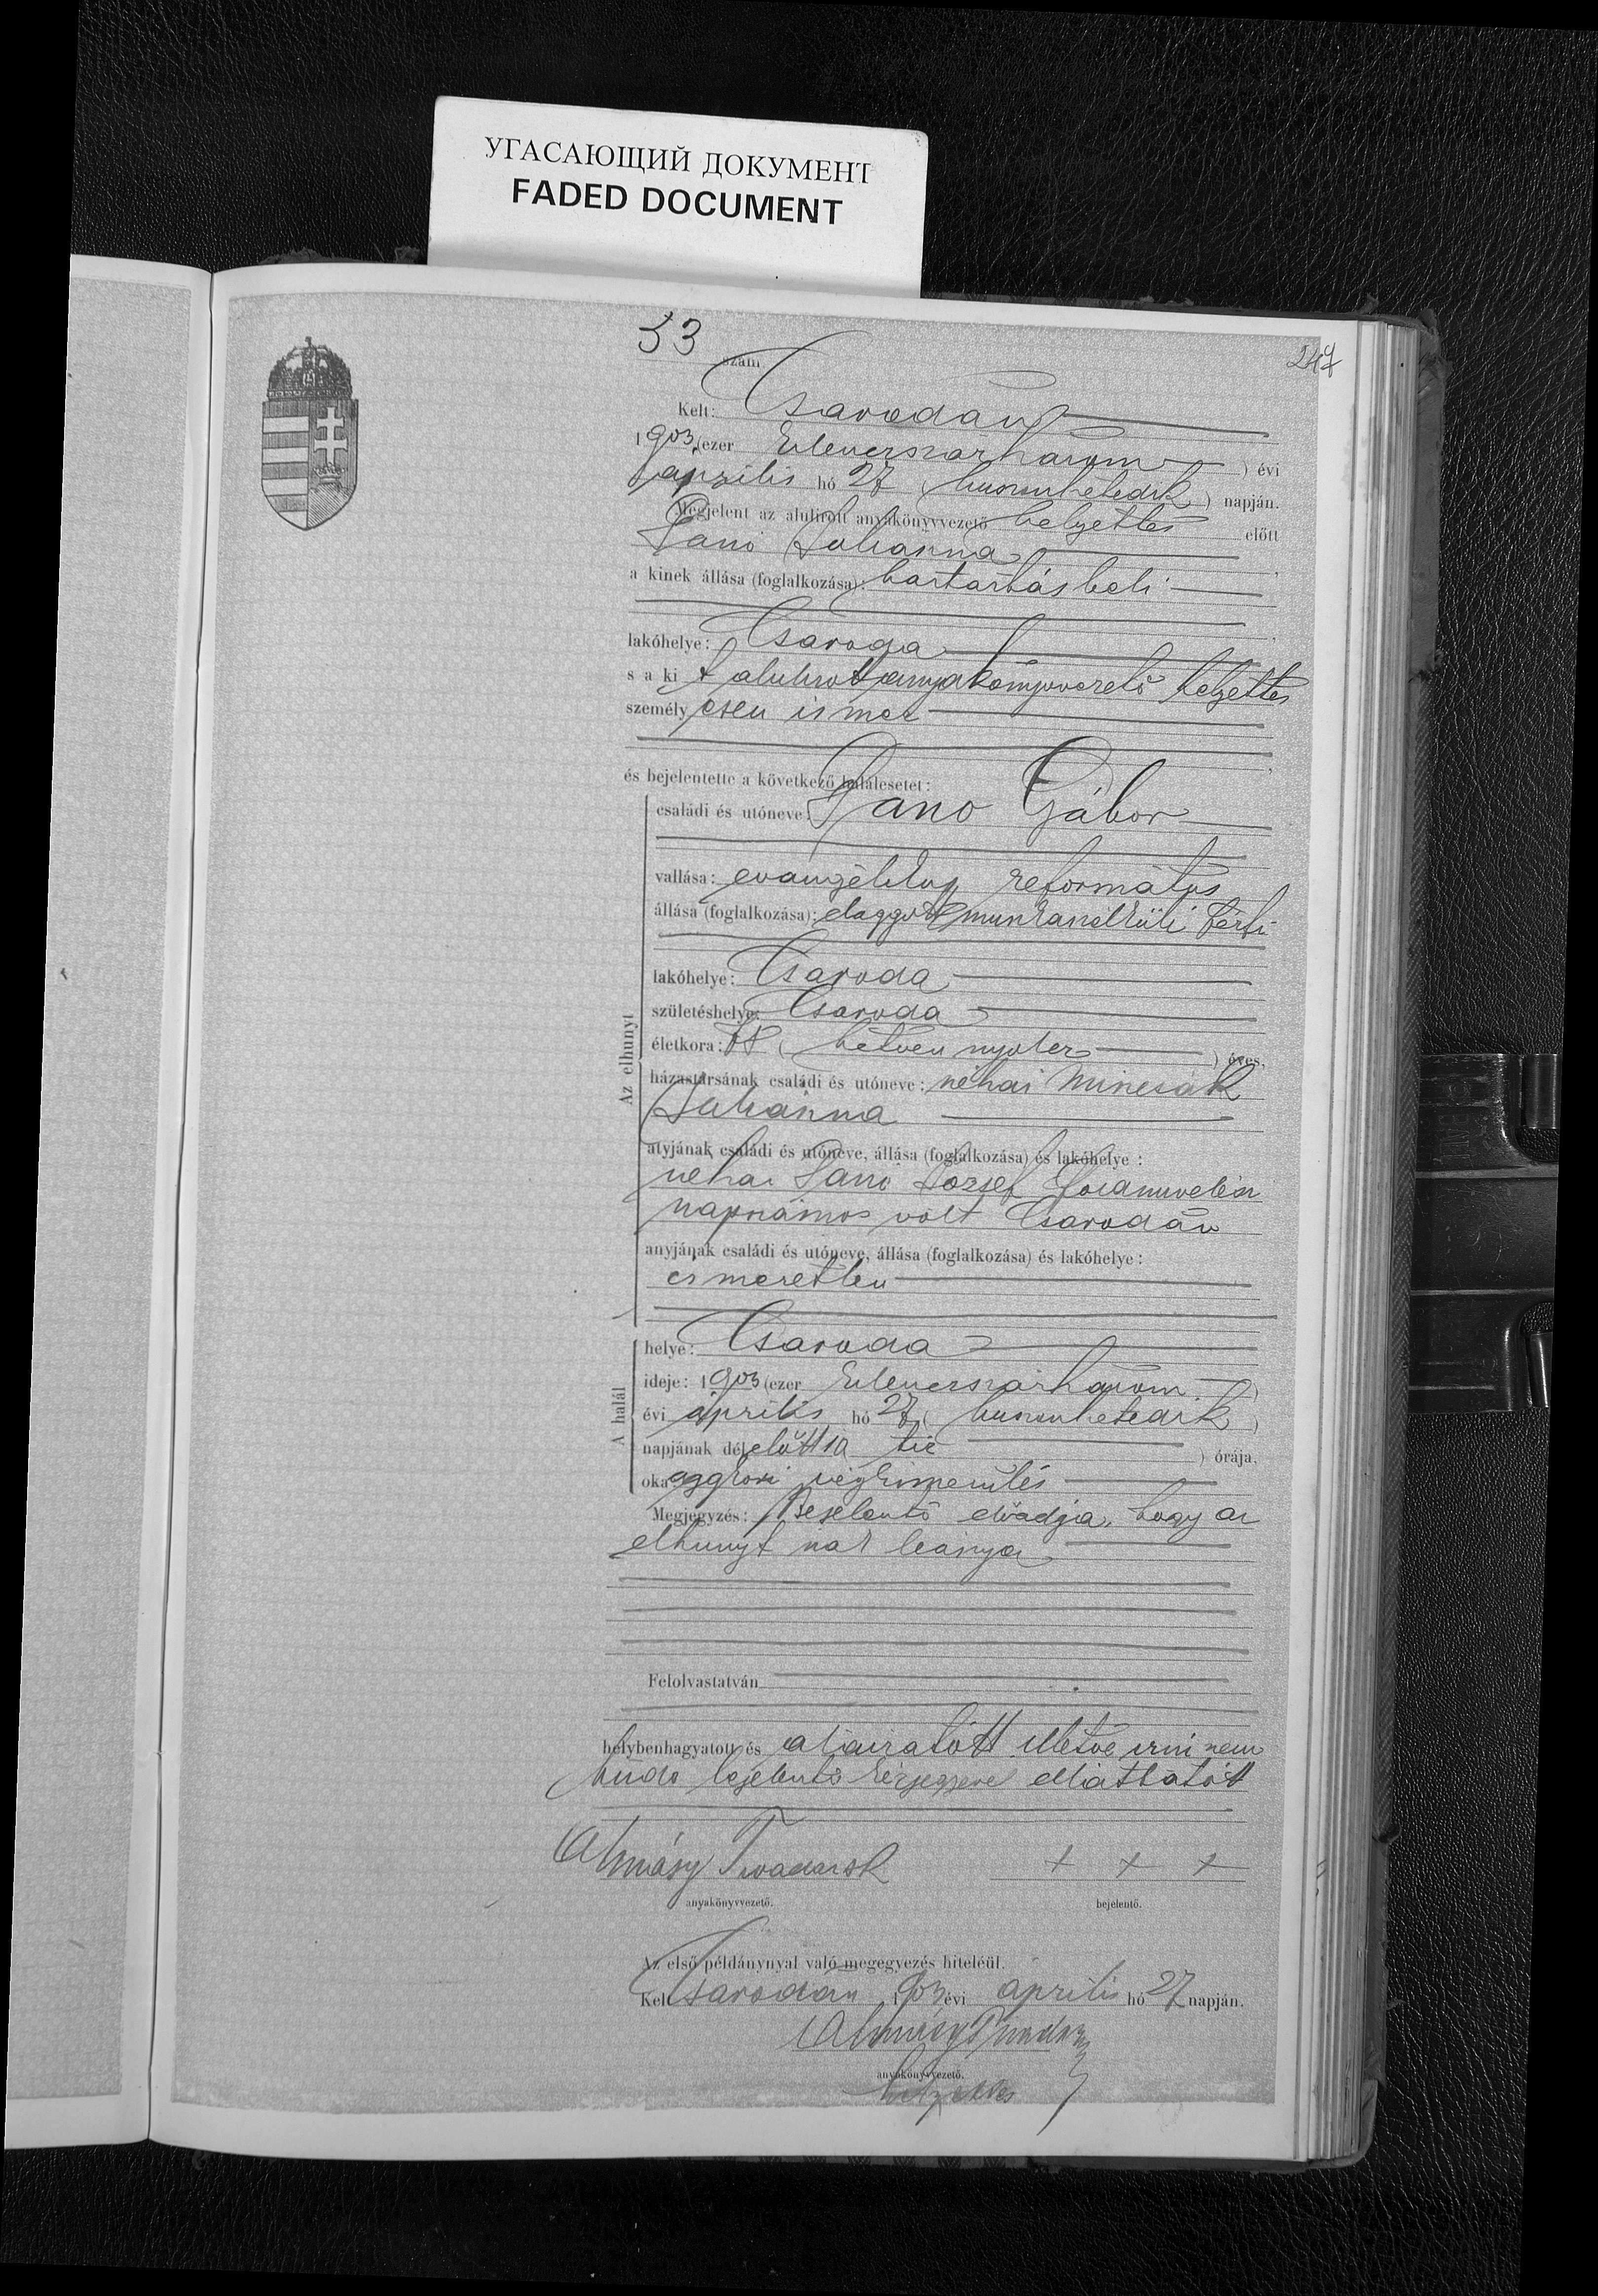 УГАСАЮЩИЙ ДОКУМЕНТ
FADED DOCUMENT
33 szám
Kelt: Csarodán
1903 (ezer kilencszázhárom) évi
április hó 27 (huszonhetedik) napján.
Megjelent az alulirott anyakönyvvezető helyettes előtt
Panó Juliánna
a kinek állása (foglalkozása): háztartásbeli
lakóhelye: Csaroda
s a ki t alulirott anyakönyvvezető helyettes
személy esen ismer
és bejelentette a következő halálesetet:
családi és utóneve: Panó Gábor
vallása: evangéliug református
állása (foglalkozása): elaggott munkanélküli férfi
lakóhelye: Csaroda
születéshelye: Csaroda
életkora: 78 (hetven nyolcz) éves,
házastársának családi és utóneve: néhai Mincsák
Juliánna
atyjának családi és utóneve, állása (foglalkozása) és lakóhelye:
néhai Panó József földmivelési
napszámos volt Csarodán
anyjának családi és utóneve, állása (foglalkozása) és lakóhelye:
ismeretlen
Az elhunyt
helye: Csaroda
ideje: 1903 (ezer kilencszázhárom)
évi április hó 27 (huszonhetedik)
napjának délelőtt 10 tíz ) órája.
oka: aggkori végkimerülés
A halál
Megjegyzés: Bejelentő előadja, hogy az
elhunyt nak leánya
Felolvastatván
helybenhagyatott és aláiratott illetve irni nem
tudó bejelentő kézjegyével elláttatott
Almásy Tivadar sk
+ + +
anyakönyvvezető.
bejelentő.
Az első példánynyal való megegyezés hiteléül.
Kelt Csarodán 1903 évi április hó 27 napján.
Almásy Tivadar
anyakönyvvezető.
helyettes